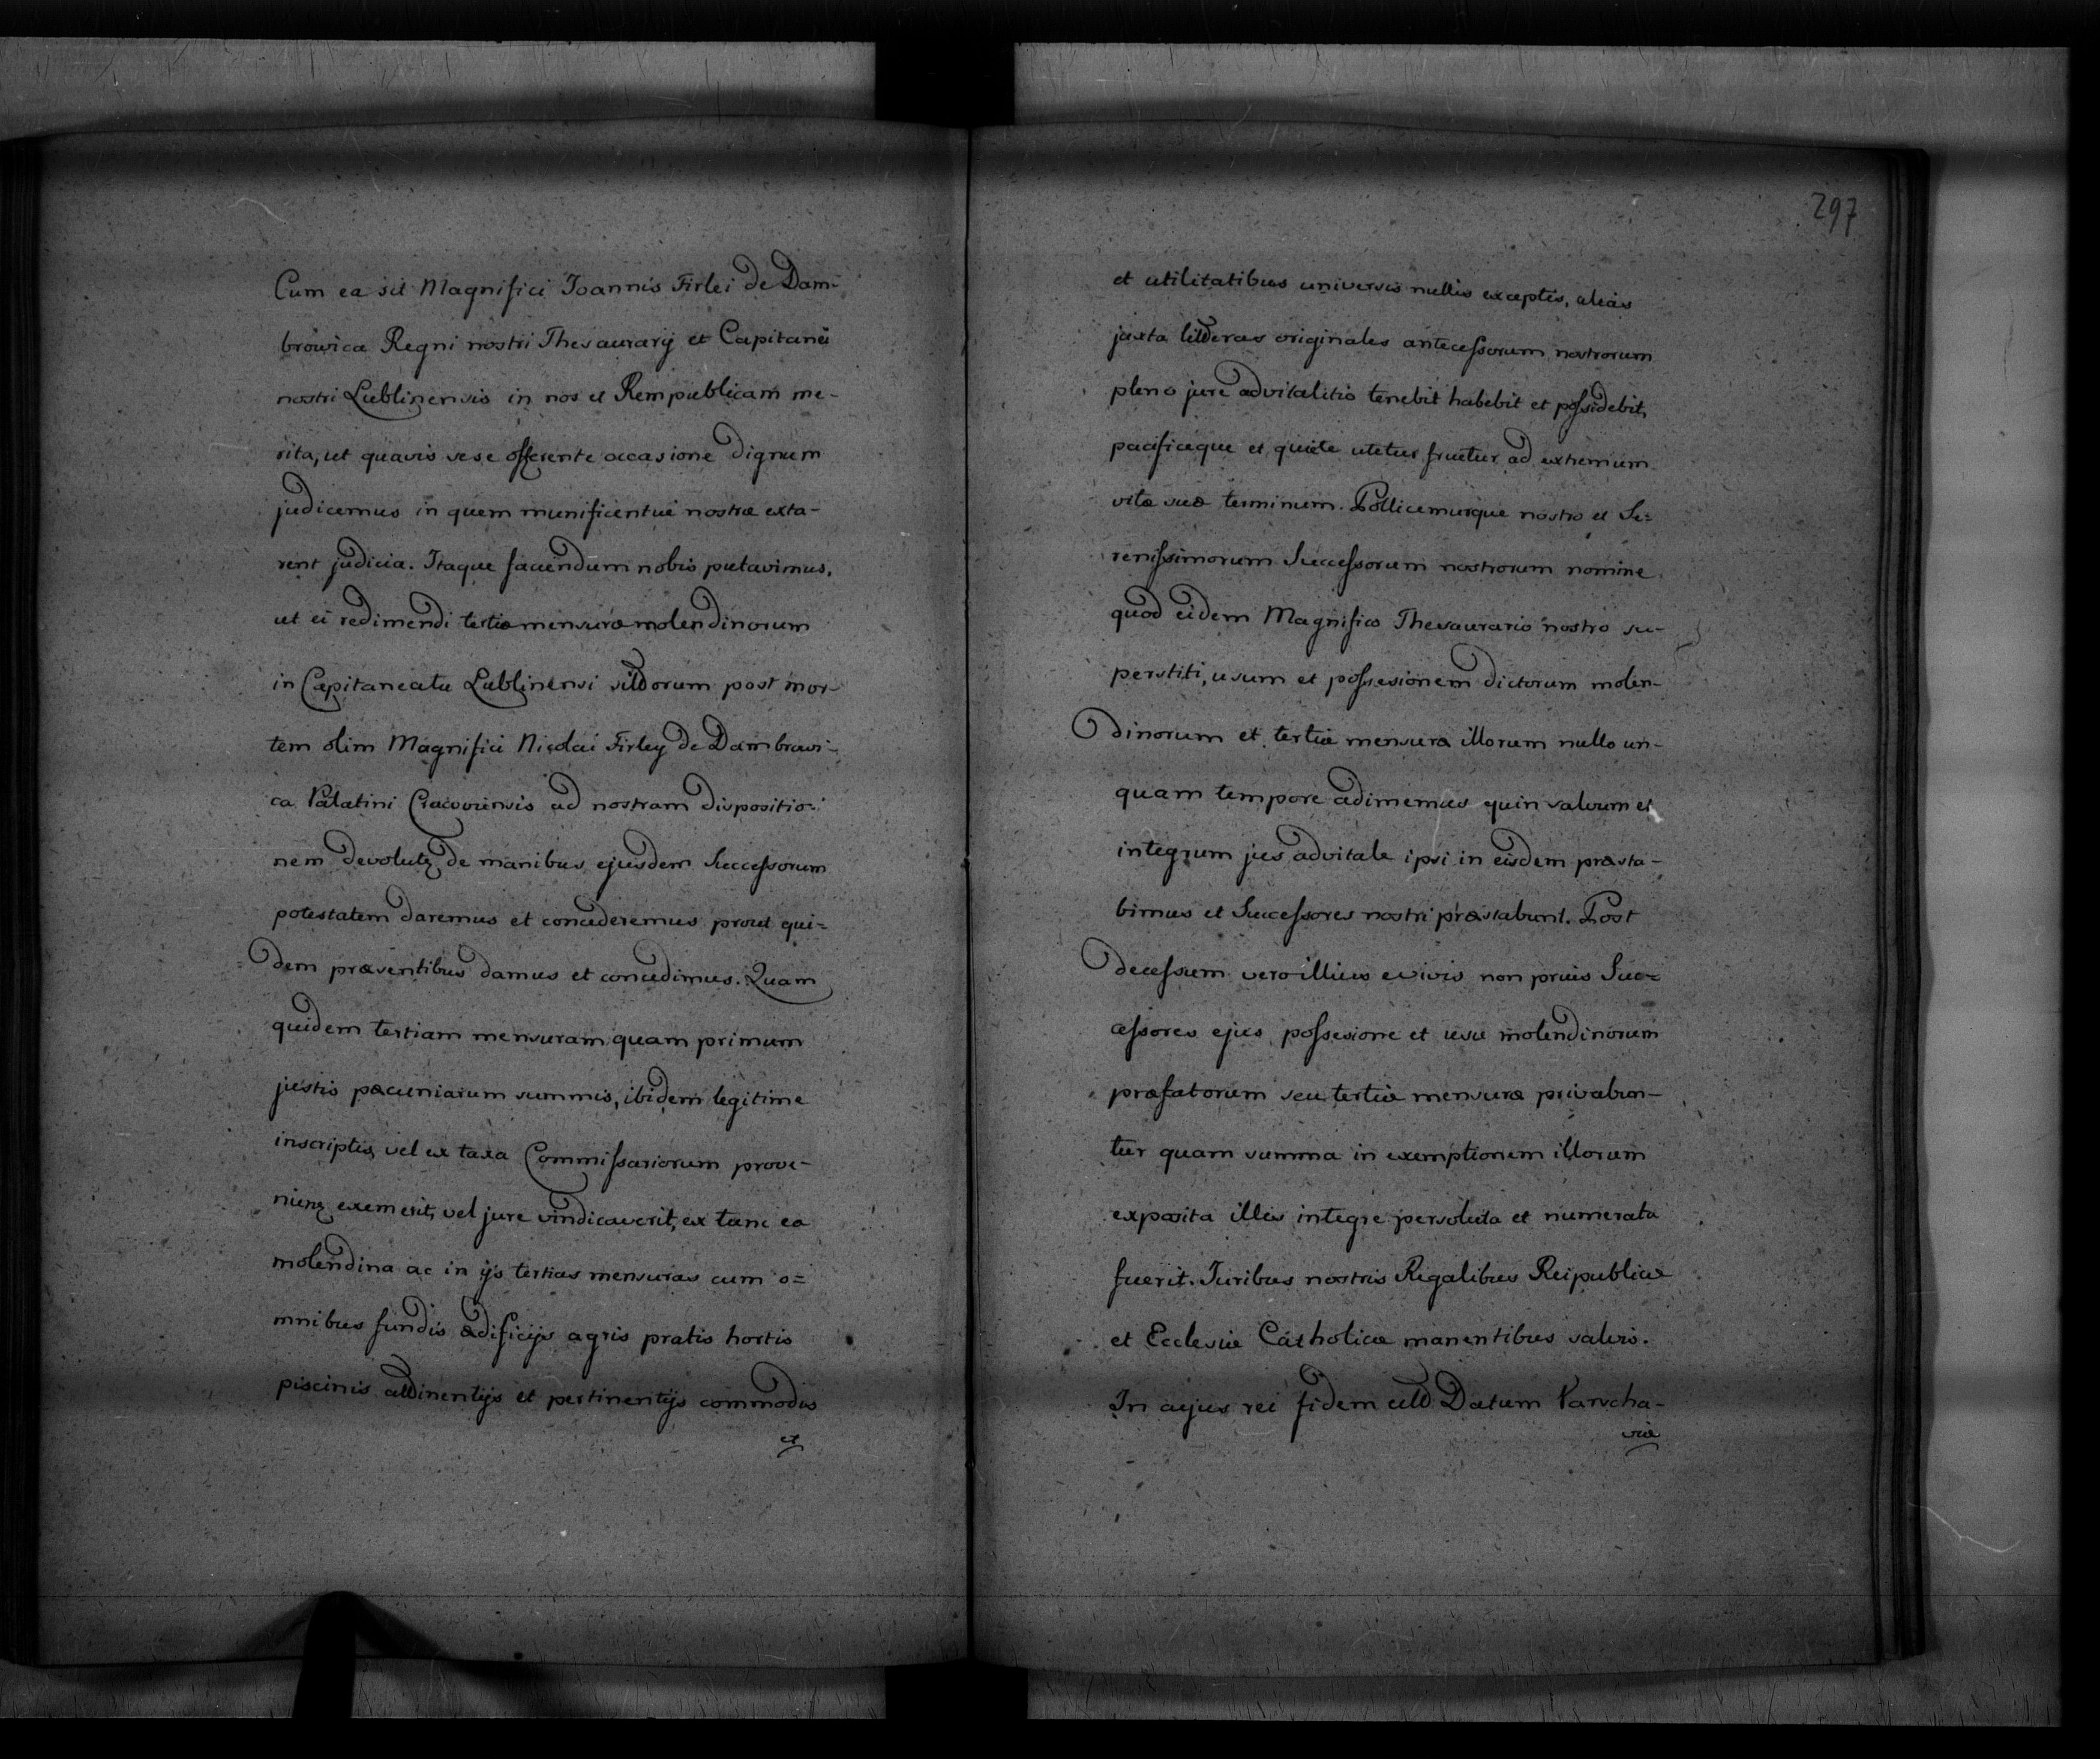 Cum ea sit Magnifici Joannis Firlei de Dam-
browica Regni nostri Thesaurarij et Capitanei
nostri Lublinensis in nos et Rempublicam me-
rita, ut quavis sese offerente occasione dignum
judicemus in quem munificentiæ nostræ exta-
rent judicia. Itaque faciendum nobis putavimus,
ut ei redimendi tertiæ mensuræ molendinorum
in Capitaneatu Lublinensi sittorum post mor-
tem olim Magnifici Nicolai Firley de Dambrowi-
ca Palatini Cracoviensis ad nostram dispositio-
nem devolutę de manibus ejusdem Successorum
potestatem daremus et concederemus prout qui=
dem præsentibus damus et concedimus. Quam
quidem tertiam mensuram quam primum
justis pæcuniarum summis, ibidem legitime
inscriptis, vel ex taxa Commissariorum prove-
nienę exemerit, vel jure vindicaverit, ex tunc ea
molendina ac in ijs tertias mensuras cum o=
mnibus fundis ædificijs agris pratis hortis
piscinis attinentijs et pertinentijs commodis
et
297
et utilitatibus universis nullis exceptis, alias
juxta litteras originales antecessorum nostrorum
pleno jure advitalitio tenebit habebit et possidebit,
pacificeque et quiete utetur fruetur ad extremum
vitæ suæ terminum. Pollicemurque nostro et Se=
renissimorum Successorum nostrorum nomine
quod eidem Magnifico Thesaurario nostro su-
perstiti, usum et possesionem dictorum molen-
dinorum et tertiæ mensuræ illorum nullo un-
quam tempore adimemus quin salvum et
integrum jus advitale ipsi in eisdem præsta-
bimus et Successores nostri præstabunt. Post
decessum vero illius e vivis non prius Suc=
cessores ejus possesione et usu molendinorum
præfatorum seu tertiæ mensuræ privabun-
tur quam summa in exemptionem illorum
exposita illis integre persoluta et numerata
fuerit. Juribus nostris Regalibus Reipublicæ
et Ecclesiæ Catholicæ manentibus salvis.
In cujus rei fidem ettt Datum Varscha-
viæ